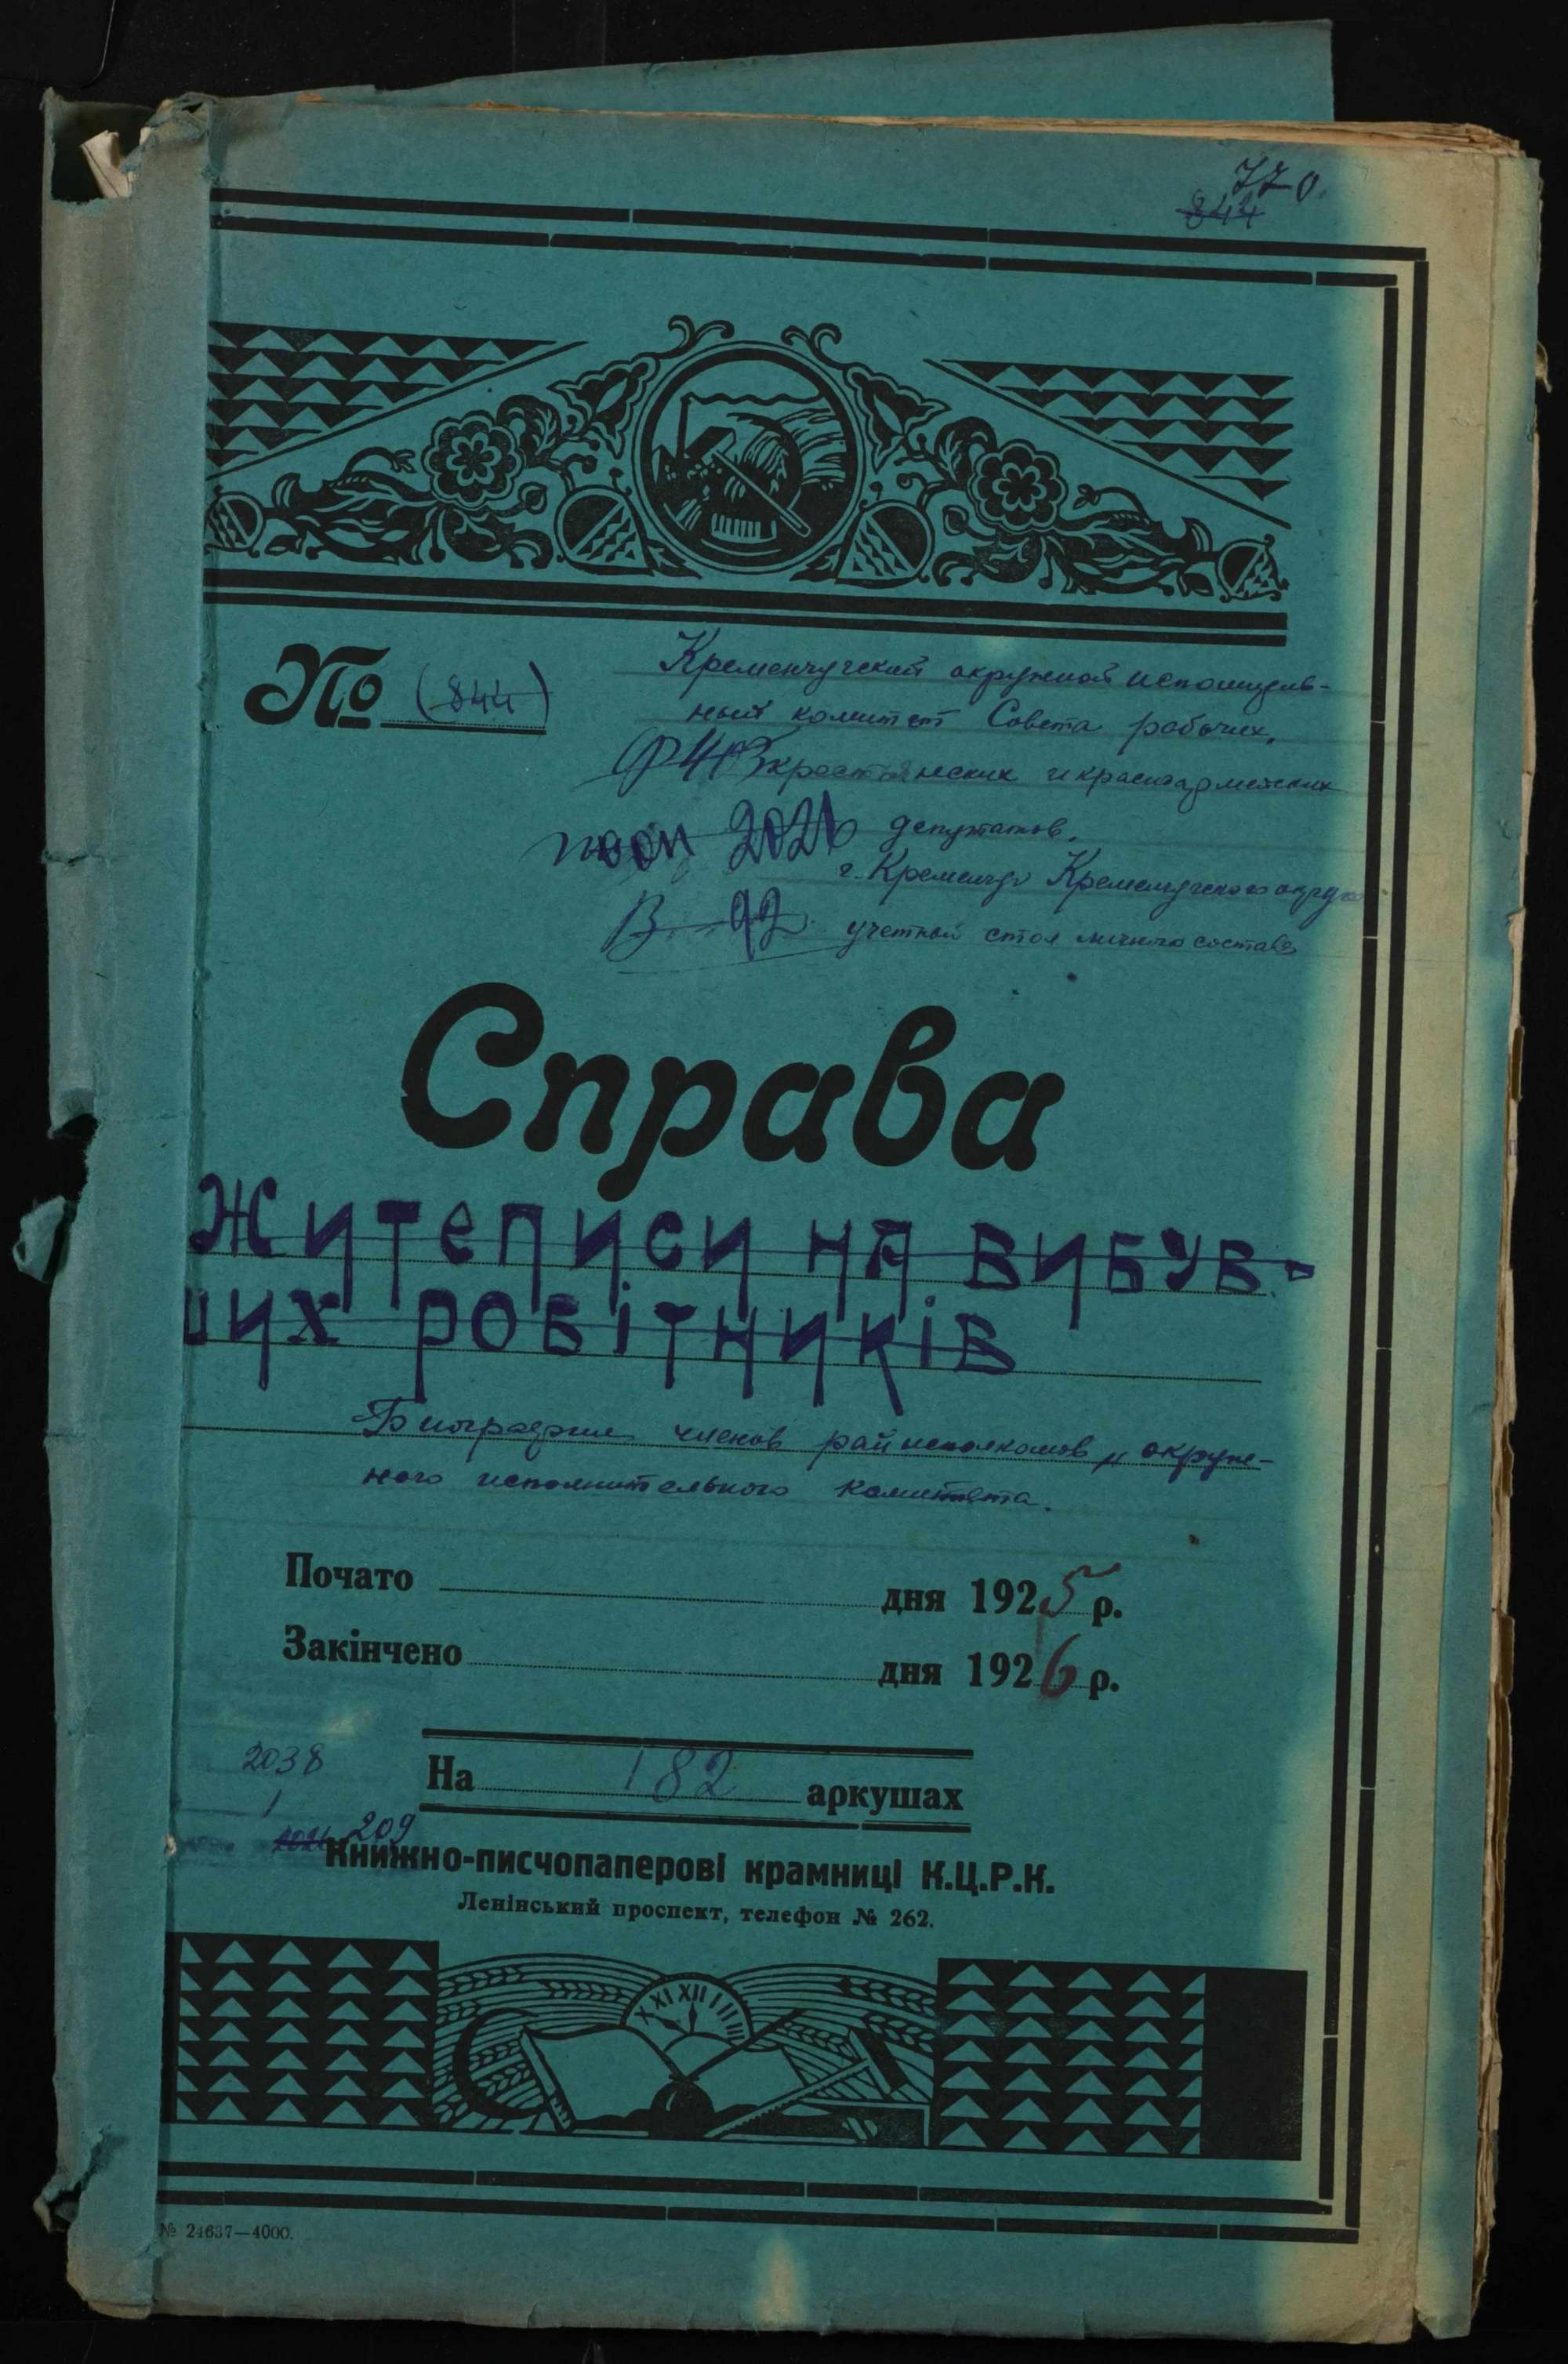 770.
844
№ (844)
Кременчугский окружной исполнитель-
ный комитет Совета рабочих,
крестьянских и красноармейских
депутатов.
г. Кременчуг Кременчугского округа
учетный стол личного состава
Справа
Житеписи на вибув-
ших робітників
Биографии членов райисполкомов и окруж-
ного исполнительного комитета.
Почато дня 1925 р.
Закінчено дня 1926 р.
2038
1
На 182 аркушах
209
Книжно-писчопаперові крамниці К.Ц.Р.К.
Ленінський проспект, телефон № 262.
X XI XII I II III
№ 24637—4000.